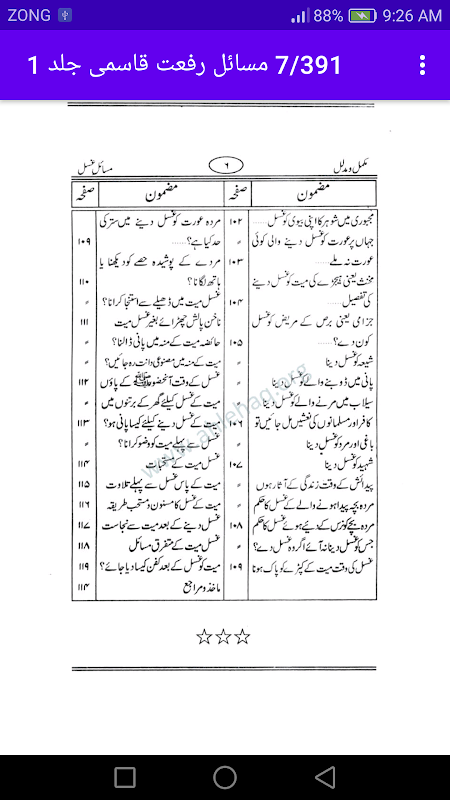 ZONG 88% 9:26 AM
7/391 مسائل رفعت قاسمی جلد 1
مکمل و مدلل ۶ مسائل غسل
مضمون صفحہ
مجبوری میں شوہر کا اپنی بیوی کو غسل ........ ۱۰۲
جہاں پر عورت کو غسل دینے والی کوئی
عورت نہ ملے ۱۰۳
مخنث یعنی ہیجڑے کی میت کو غسل دینے
کی تفصیل ۱۰۴
جزامی یعنی برص کے مریض کو غسل
کون دے؟ ........ ۱۰۵
شیعہ کو غسل دینا 〃
پانی میں ڈوبنے والے کو غسل دینا 〃
سیلاب میں مرنے والے کو غسل دینا 〃
کافر اور مسلمانوں کی نعشیں مل جائیں تو ۱۰۶
باغی اور مرد کو غسل دینا 〃
شہید کو غسل دینا ۱۰۷
پیدائش کے وقت زندگی کے آثار ہوں 〃
مردہ بچہ پیدا ہونے والے کے غسل کا حکم 〃
مردہ بچے کو نرس کے دیئے ہوئے غسل کا حکم ۱۰۸
جس کو غسل دینا نہ آئے اگر وہ غسل دے؟ 〃
غسل کی وقت میت کے کپڑے کو پاک ہونا ۱۰۹
مضمون صفحہ
مردہ عورت کو غسل دینے میں ستر کی
حد کیا ہے؟ ........ ۱۰۹
مردے کے پوشیدہ حصے کو دیکھنا یا
ہاتھ لگانا؟ ۱۱۰
غسل میت میں ڈھیلے سے استنجا کرانا؟ 〃
ناخن پالش چھڑائے بغیر غسل میت ۱۱۱
حائضہ میت کے منہ میں پانی ڈالنا؟ 〃
میت کے منہ میں مصنوعی دانت رہ جائیں؟ 〃
غسل کے وقت آنحضور ﷺ کے پاؤں ۱۱۲
میت کے غسل کیلئے گھر کے برتنوں میں 〃
میت کے غسل دینے کیلئے کیسا پانی ہو؟ ۱۱۳
غسل سے پہلے میت کو وضو کرانا؟ 〃
غسل میت کے مستحبات ۱۱۴
میت کے پاس غسل سے پہلے تلاوت ۱۱۵
میت کے غسل کا مسنون و مستحب طریقہ ۱۱۶
غسل دینے کے بعد میت سے نجاست ۱۱۷
غسل میت کے متفرق مسائل ۱۱۸
میت کو غسل کے بعد کفن کیسا دیا جائے؟ ۱۱۹
ماخذ و مراجع ۱۱۴
www.ahlehaq.org